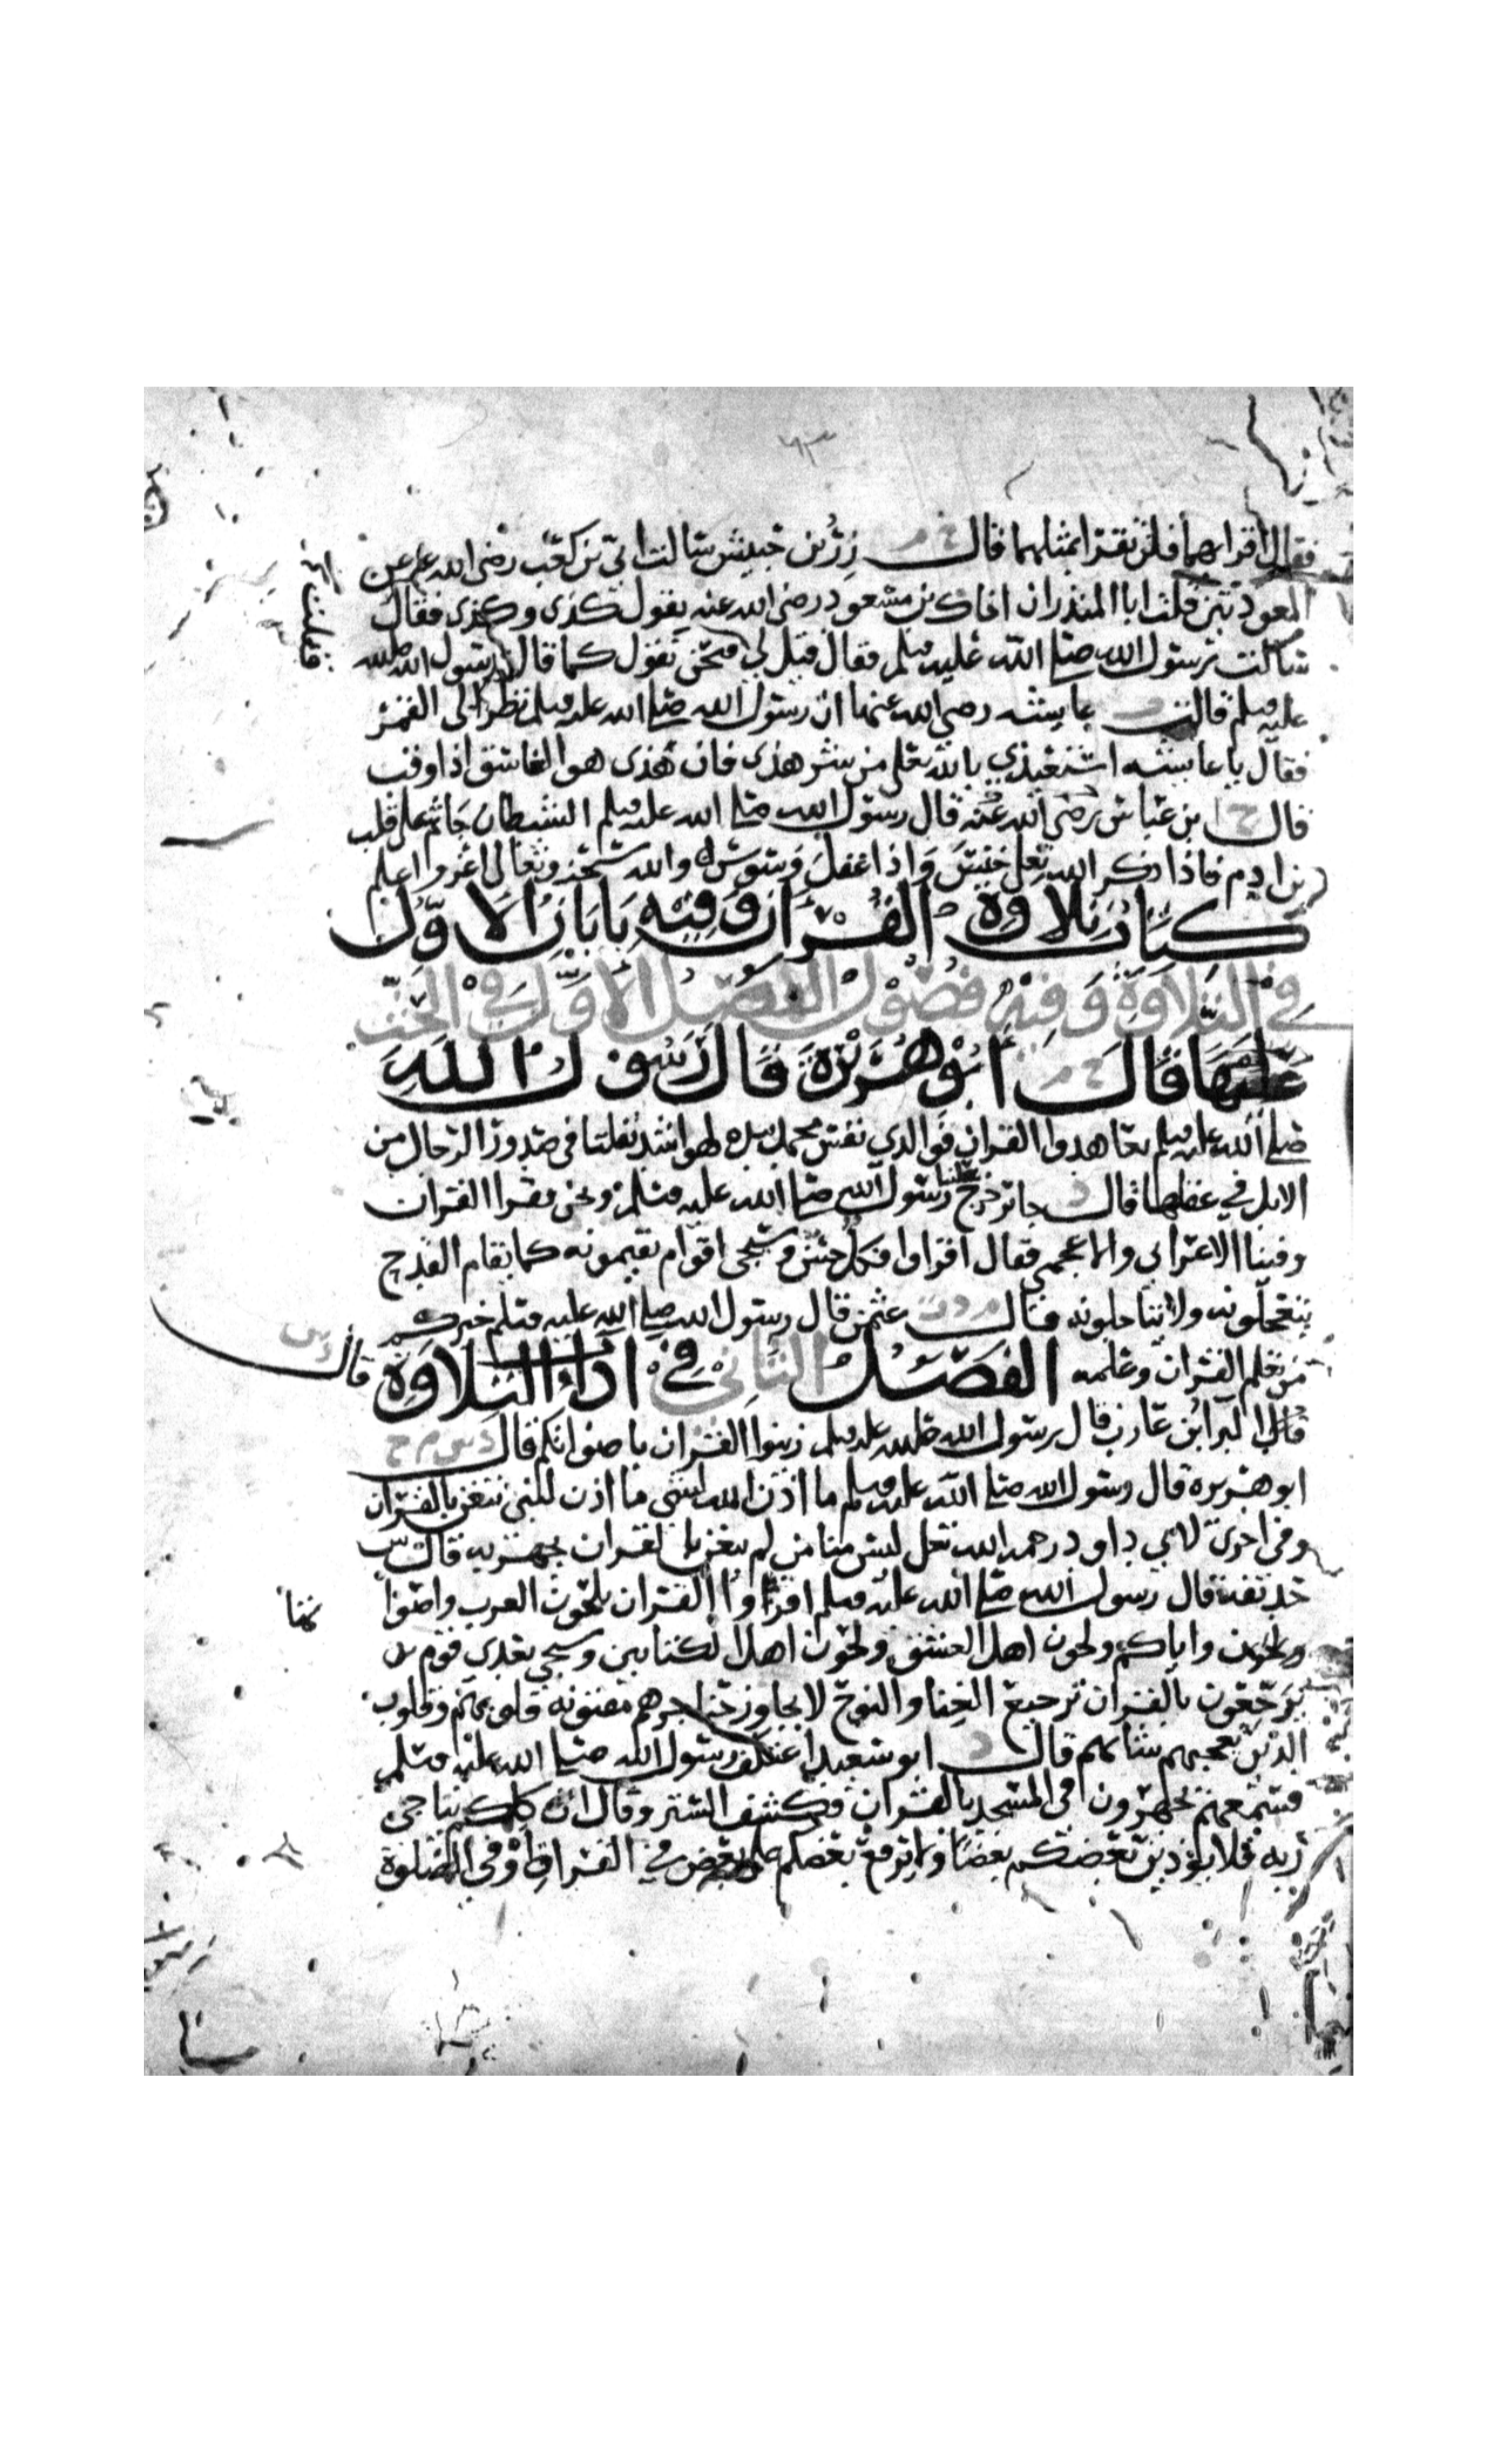 ٦٣
فقال اقراهما فلن تقرا بمثلهما قال خ م زر بن حبيش سالت ابي بن كعب رضي الله عنه عن
المعوذتين قلت ابا المنذر ان اخاك بن مسعود رضي الله عنه يقول كذى وكذى فقال
سالت رسول الله صلى الله عليه وسلم فقال قيل لي فنحن نقول كما قال رسول الله صلى الله
عليه وسلم قالت عايشه رضي الله عنها ان رسول الله صلى الله عليه وسلم نظر الى القمر
فقال يا عايشه استعيذي بالله تعلى من شر هذى فان هذى هو الغاسق اذا وقب
قال خ بن عباس رضي الله عنه قال رسول الله صلى الله عليه وسلم الشيطان جاثم على قلب
بن ادم فاذا ذكر الله تعلى خنس واذا غفل وسوس له والله سبحنه وتعالى اعز واعلم
كتاب تلاوة القران وفيه بابان الاول
في التلاوة وفيه فصول الفصل الاول في الحث
عليها قال خ م ابو هريرة قال رسول الله
صلى الله عليه وسلم تعاهدوا القران فوالذي نفس محمد بيده لهو اشد تفلتا في صدور الرجال من
الابل في عقلها قال د جابر خرج علينا رسول الله صلى الله عليه وسلم ونحن نقرا القران
وفينا الاعرابي والاعجمي فقال اقراوا فكل حسن وسيجى اقوام يقيمونه كما يقام القدح
يتعجلونه ولا يتاجلونه قال عثمن قال رسول الله صلى الله عليه وسلم خيركم
من تعلم القران وعلمه الفصل الثاني في اداء التلاوة قال
البرا بن عازب قال رسول الله صلى الله عليه وسلم زينوا القران باصواتكم قال د س م خ
ابو هريره قال رسول الله صلى الله عليه وسلم ما اذن الله لشي ما اذن للنبي يتغن بالقران
وفي اخرى لابي داود رحمه الله تعلى ليس منا من لم يتغن بالقران يجهر به قال
حذيفة قال رسول الله صلى الله عليه وسلم اقراوا القران بلحون العرب واصوا
واياكم ولحون اهل العشق ولحون اهل الكتابين وسيجي بعدي قوم
يرجعون بالقران ترجيع الغنا والنوح لا يجاوز حناجرهم مفتونه قلوبهم وقلوب
الذين يعجبهم شانهم قال د ابو سعيد اعتكف رسول الله صلى الله عليه وسلم
فسمعهم يجهرون في المسجد بالقران فكشف الستر وقال ان كلكم يناجي
ربه فلا يؤذين بعضكم بعضا ولا يرفع بعضكم على بعض في القراة او في الصلوة